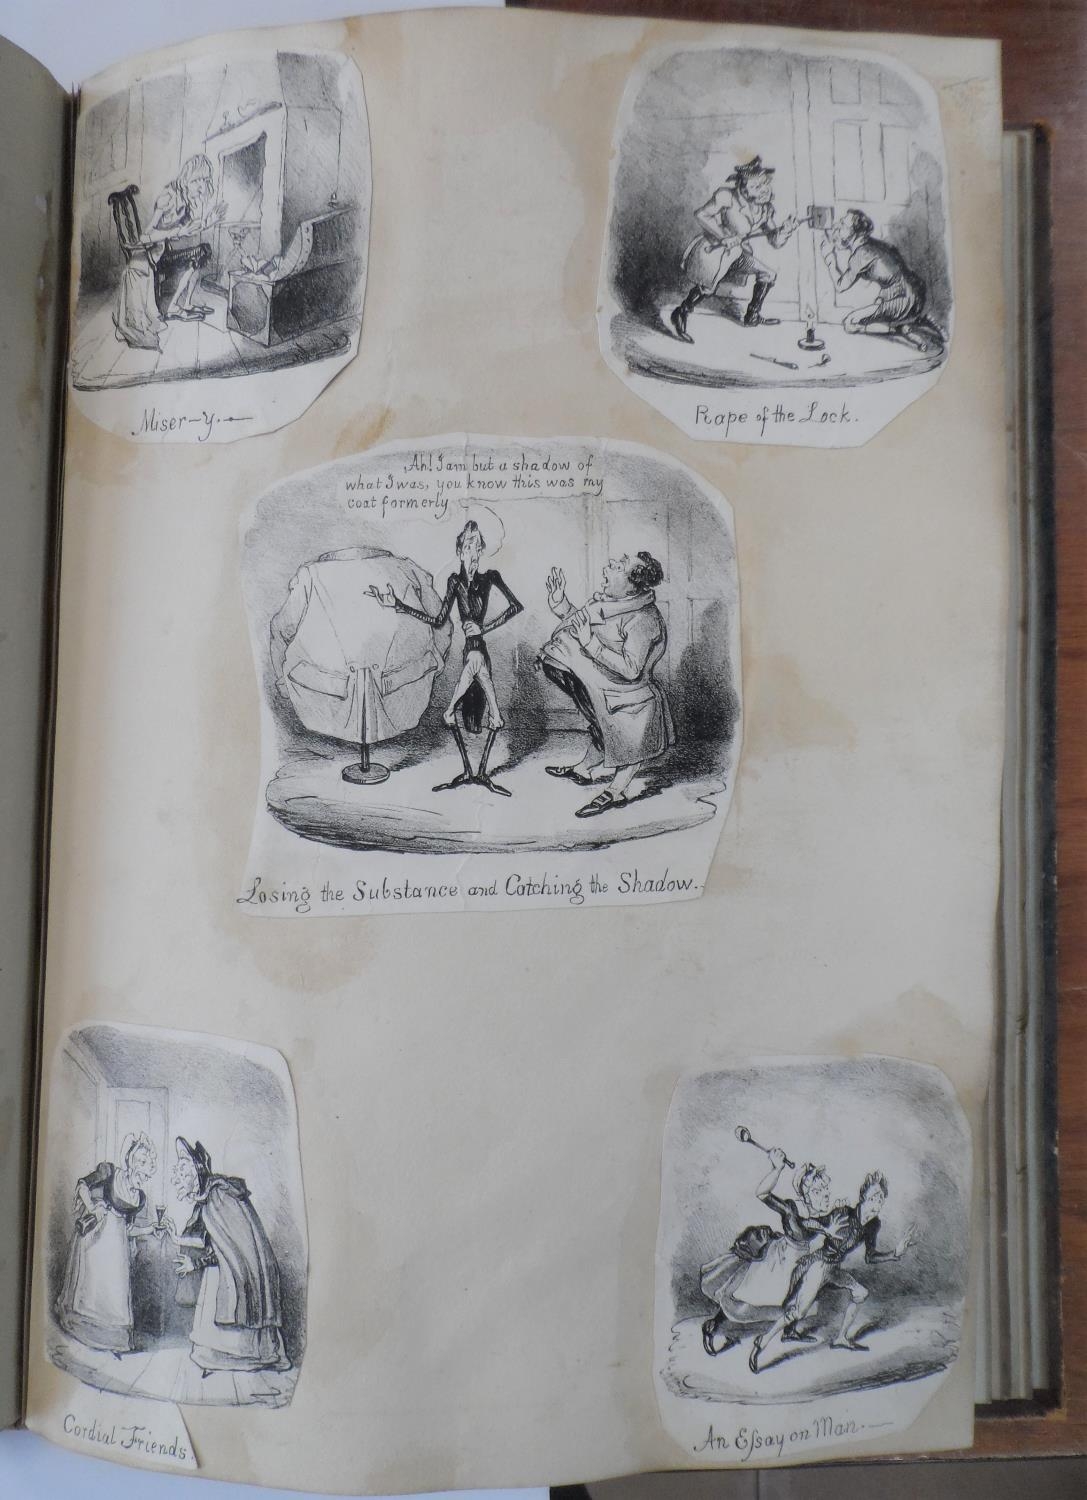 Miser-y.
Rape of the Lock.
Ah! I am but a shadow of
what I was, you know this was my
coat formerly
Losing the Substance and Catching the Shadow.
Cordial Friends.
An Eſsay on Man.